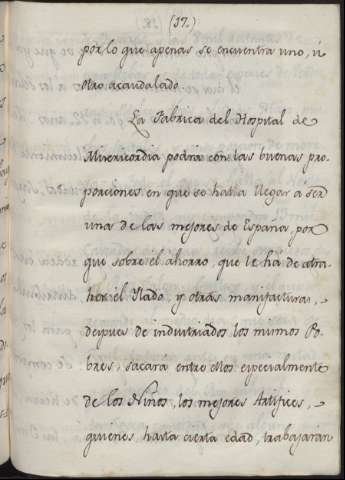 (17.)
por lo que apenas se encuentra uno, ù
otro acaudalado.
La Fabrica del Hospital de
Misericordia podrà con las buenas pro-
porciones en que se halla llegar a ser
una de las mejores de España, por
que sobre el ahorro, que le ha de atra-
her el Ilado, y otras manifacturas,
despues de industriados los mismos Po-
bres, sacarà entre ellos especialmente
de los Niños, los mejores Artifices,
quienes, hasta cierta edad, trabajaràn